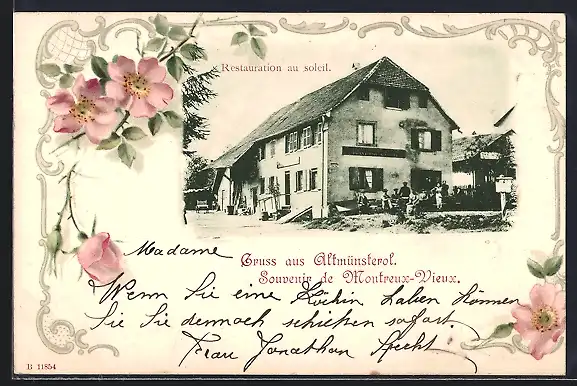 Restauration au soleil.
Gruss aus Altmünsterol.
Souvenir de Montreux-Vieux.
Madame
Wenn Sie eine Köchin haben können
Sie Sie dennoch schicken sofort.
Frau Jonathan Specht
B 11854